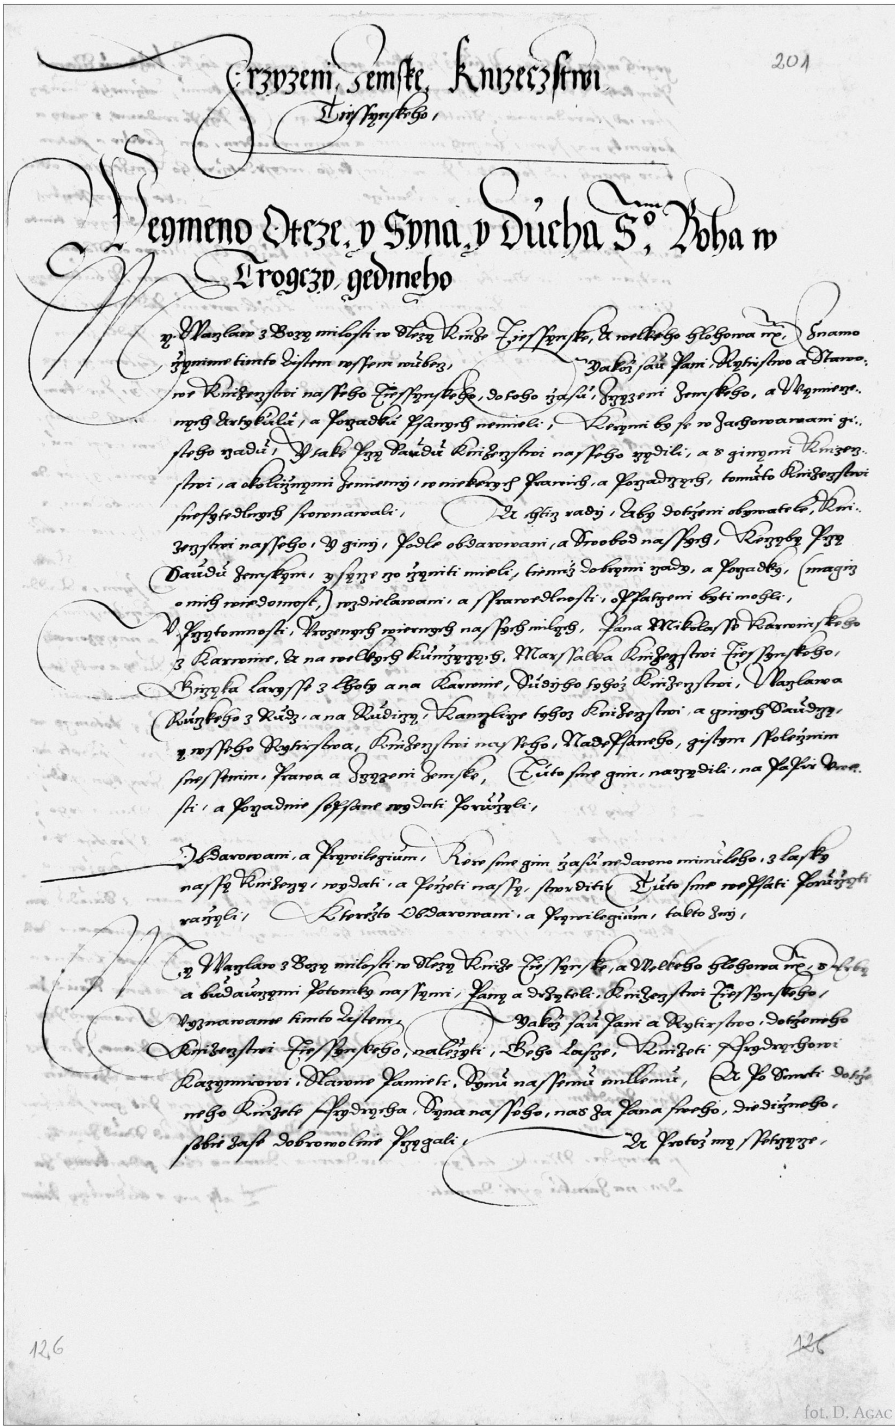 201
Zrzyzeni Zemske Knizeczstwi
Tiessynskeho,
We gmeno Otcze, y Syna, y Ducha S°, Boha w
Trogczy gedineho
My Waczlaw z Bozy milosti w Slezy Knize Tiessynske, A welkeho hlohowa Znamo
czynime timto Listem wssem wubecz, Yakoz sau Pani, Rytirstwo a Stawo-
we Knizeczstwi nasseho Tiessynskeho, do toho czasu, Zrzyzeni Zemskeho, a Wymiene-
nych Artykulu, a Porzadku Psanych nemieli, Kterymi by se w Zachowawani gi-
steho rzadu, Y take Przy Saudu Knizeczstwi nasseho rzydili, a s ginymi Knizecz-
stwi, a okoliczymi Zemiemi, w niekterych Prawich, a Porzadczych, tomuto Knizeczstwi
snesytedlnych srownawali, A chticz rady, Aby dotczeni obywatele, Kni-
zeczstwi nasseho, Y giny, Podle obdarowani, a Swobod nassych, Kterzyby Przy
Saudu Zemskym, czynicze czo czyniti mieli, tiemiz dobrymi rzady, a Porzadky, (magicz
o nich wiedomost,) wzdielawani, a sprawedlnosti, opatrzeni byti mohli,
W Przytomnosti, Urozenych wiernych nassych milych, Pana Mikolasse Karwinskeho
z Karwine, A na welkych Kunczyczych, Marssalka Knizeczstwi Tiessynskeho,
Girzyka Larysse z Lhoty a na Karwine, Sudyho tyhoz Knizeczstwi, Waczlawa
Ruczkeho z Rudz, a na Rudiczy, Kanczlirze tyhoz Knizeczstwi, a ginych Saudczy,
y wsseho Rytirstwa, Knizeczstwi nasseho, Nadepsaneho, gistym spoleczym
snessenim, Prawa a Zrzyzeni Zemske, Tuto sme gim, narzydili, na Papir uwe-
sti, a Porzadnie sepsane wydati Poruczyli,
Obdarowani, a Prywilegium, Kere sme gim czasu nedawno minuleho, z lasky
nassy Knizeczy, wydati, a Peczeti nassy, stwrditi Tuto sme wepsati Poruczyti
raczyli, Kterezto Obdarowani, a Prywilegium, takto Zny,
My Waczlaw z Bozy milosti w Slezy Knize Tiessynske, a Welkeho hlohowa
a buduczymi Potomky nassymi, Pany a drzyteli, Knizeczstwi Tiessynskeho,
Wyznawame timto Listem, Yakoz sau Pani a Rytirstwo, dotczeneho
Knizeczstwi Tiessynskeho, nalezyti, Geho Lasce, Knizeti Frydrychowi
Kazymirowi, Slawne Pamieti, Synu nassemu millemu, A Po Smrti dotcze-
neho Knizete Frydrycha, Syna nasseho, nas za Pana sweho, diedicznheo,
sobie zase dobrowolnie Przygali, A Protoz my spatrzycze,
126
126
fot. D. AGAC